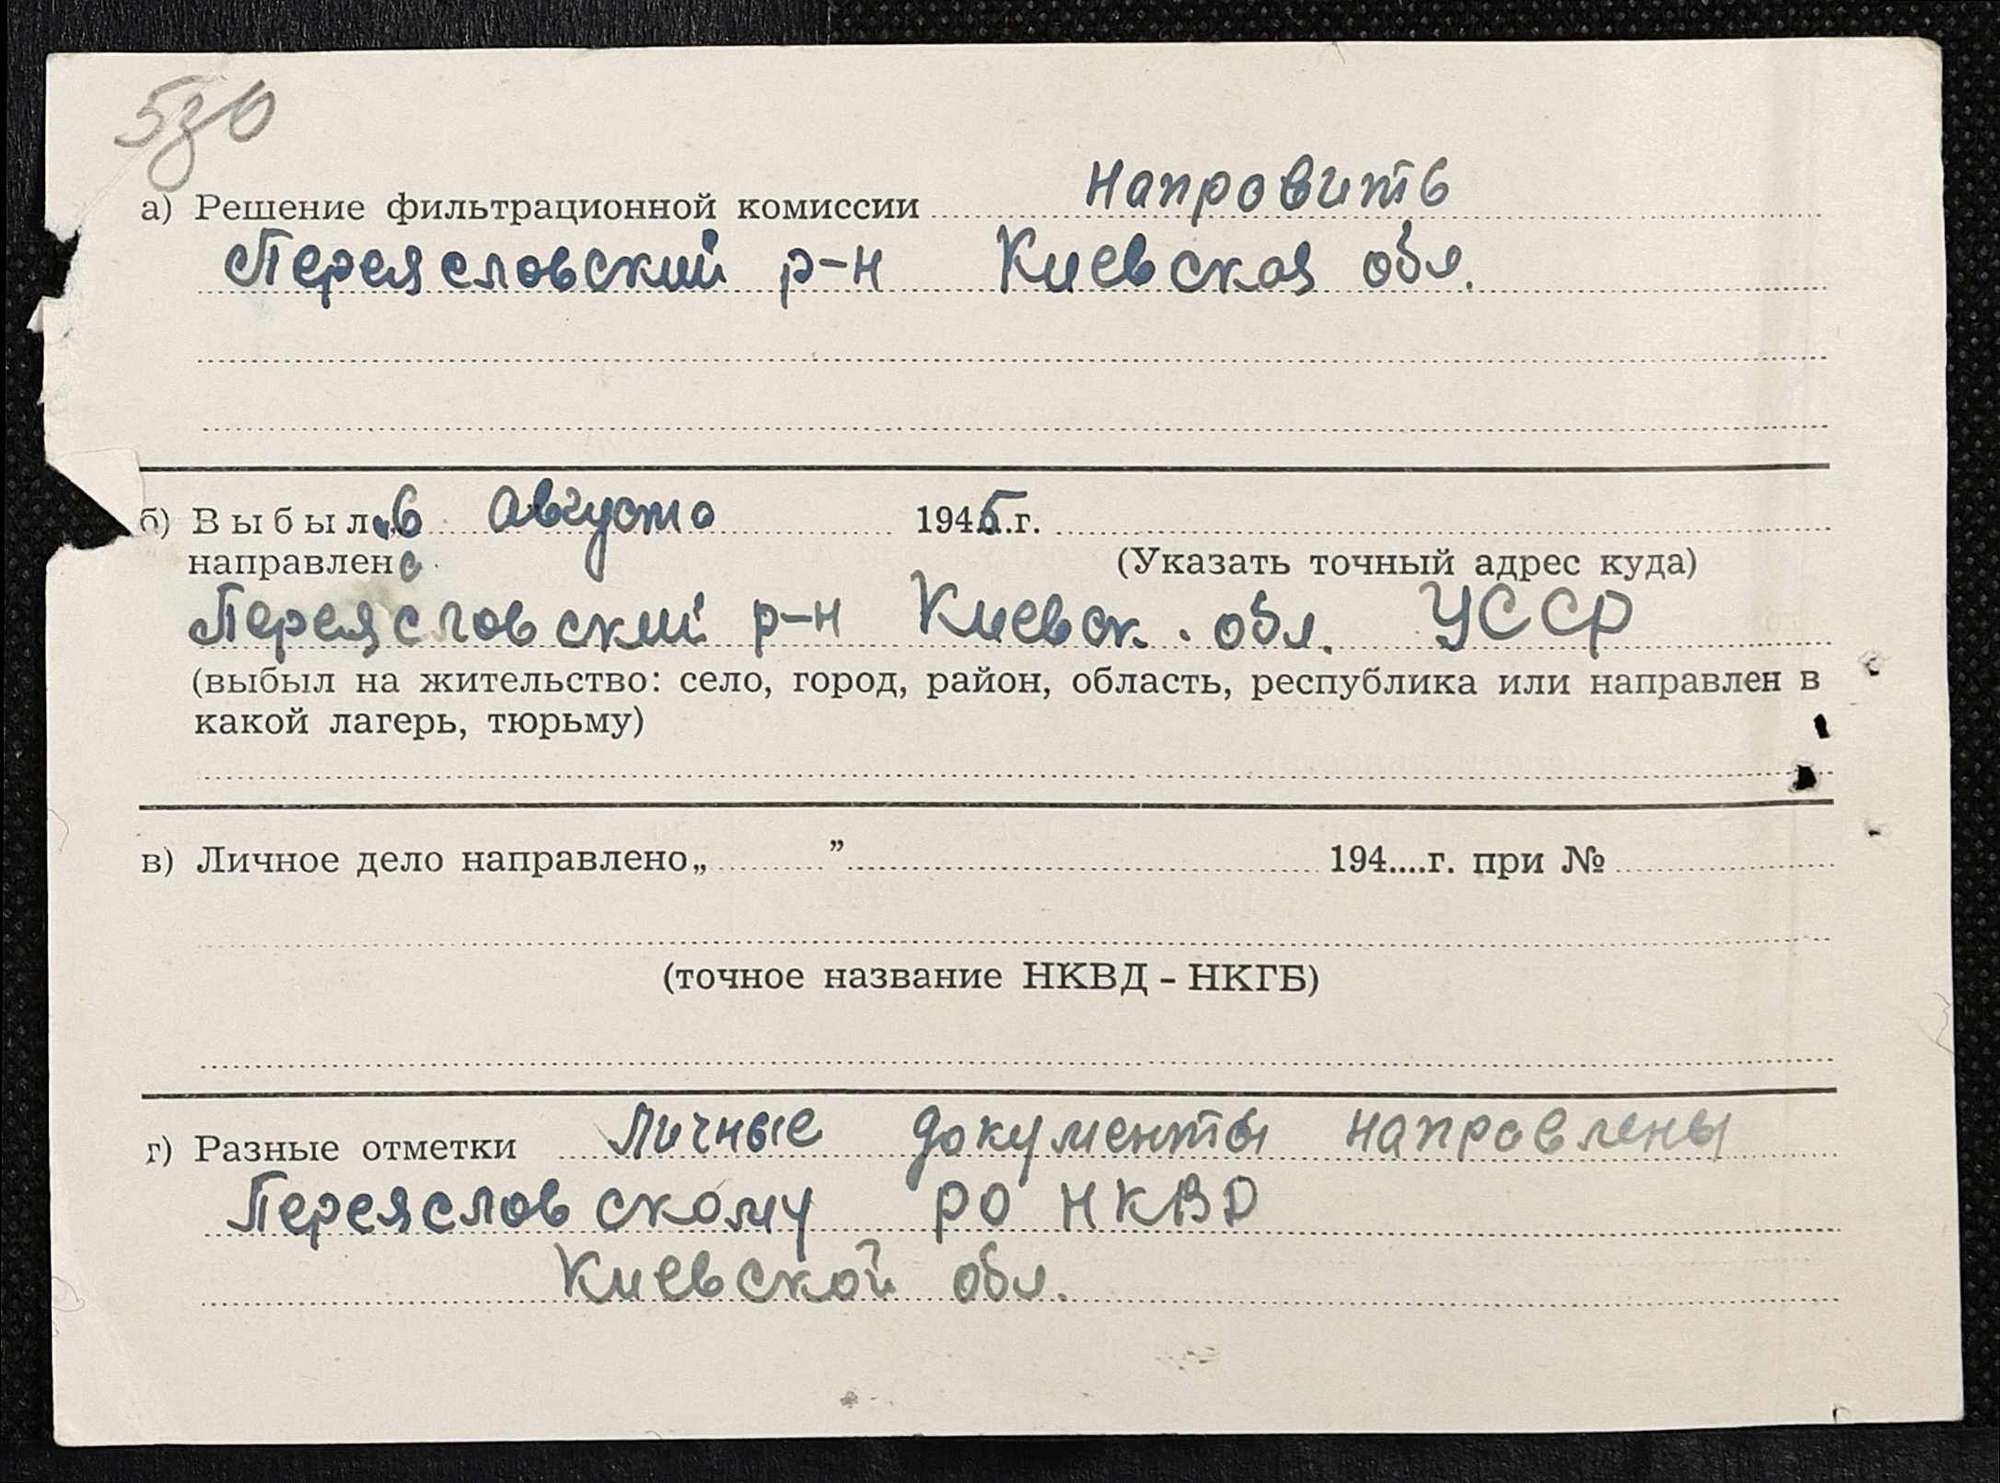 530
а) Решение фильтрационной комиссии направить
Переяславский р-н Киевская обл.
б) Выбыла „6 августа 1945 г.
направлена (Указать точный адрес куда)
Переяславский р-н Киевск. обл. УССР
(выбыл на жительство: село, город, район, область, республика или направлен в
какой лагерь, тюрьму)
в) Личное дело направлено „..........” .......... 194....г. при № ..........
(точное название НКВД - НКГБ)
г) Разные отметки Личные документы направлены
Переяславскому РО НКВД
Киевской обл.